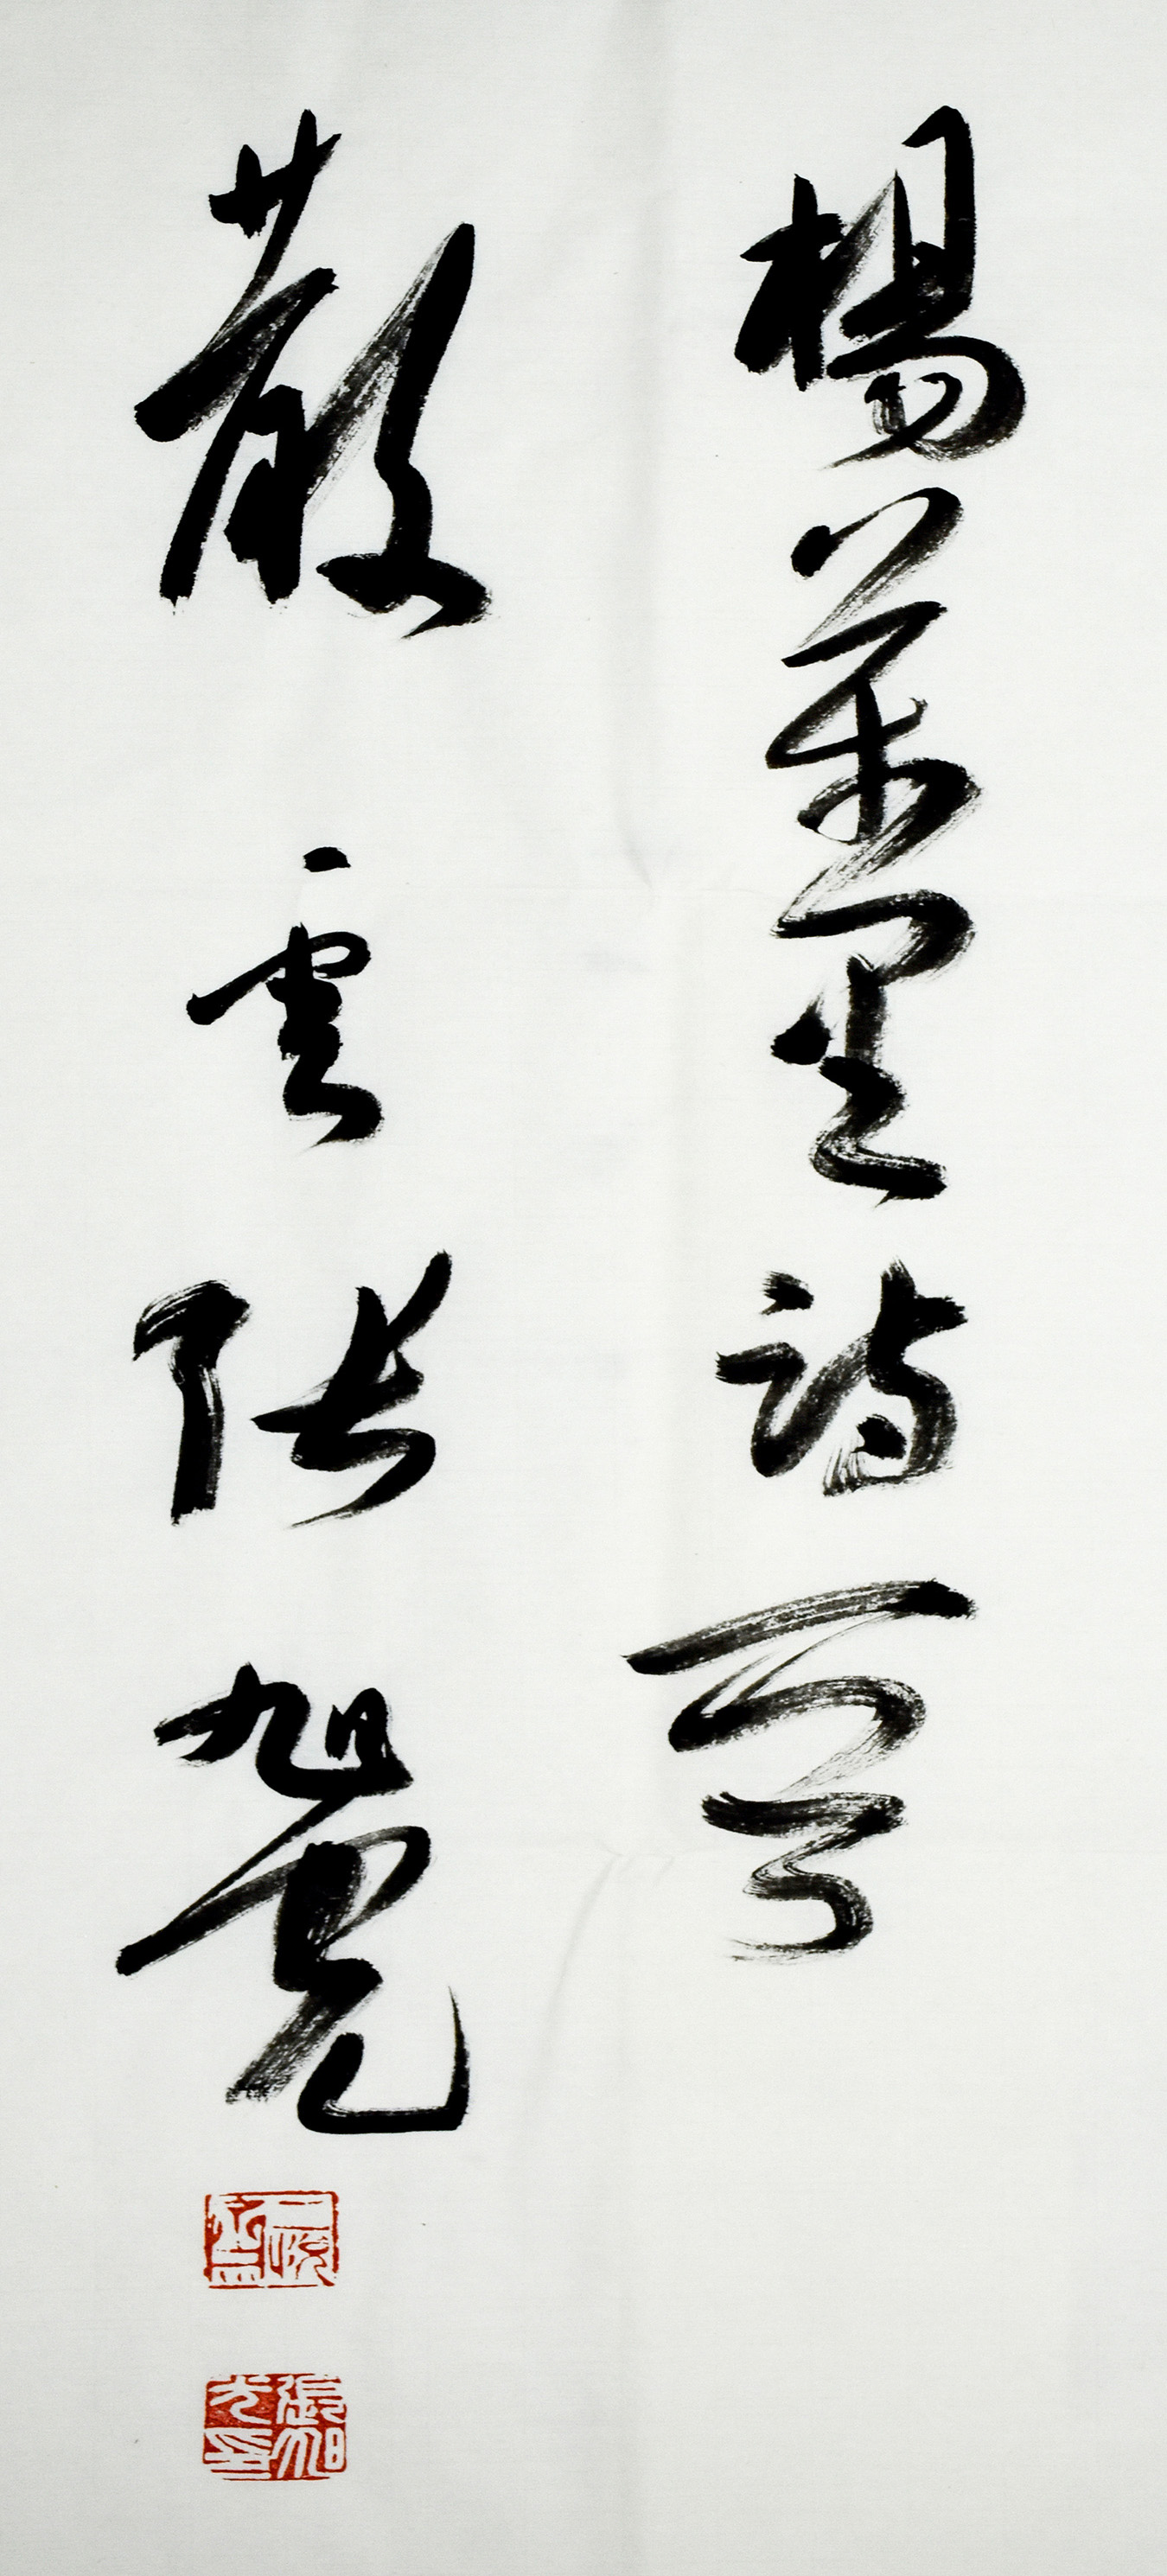 楊萬里詩一首
散雲張旭光
張旭光印